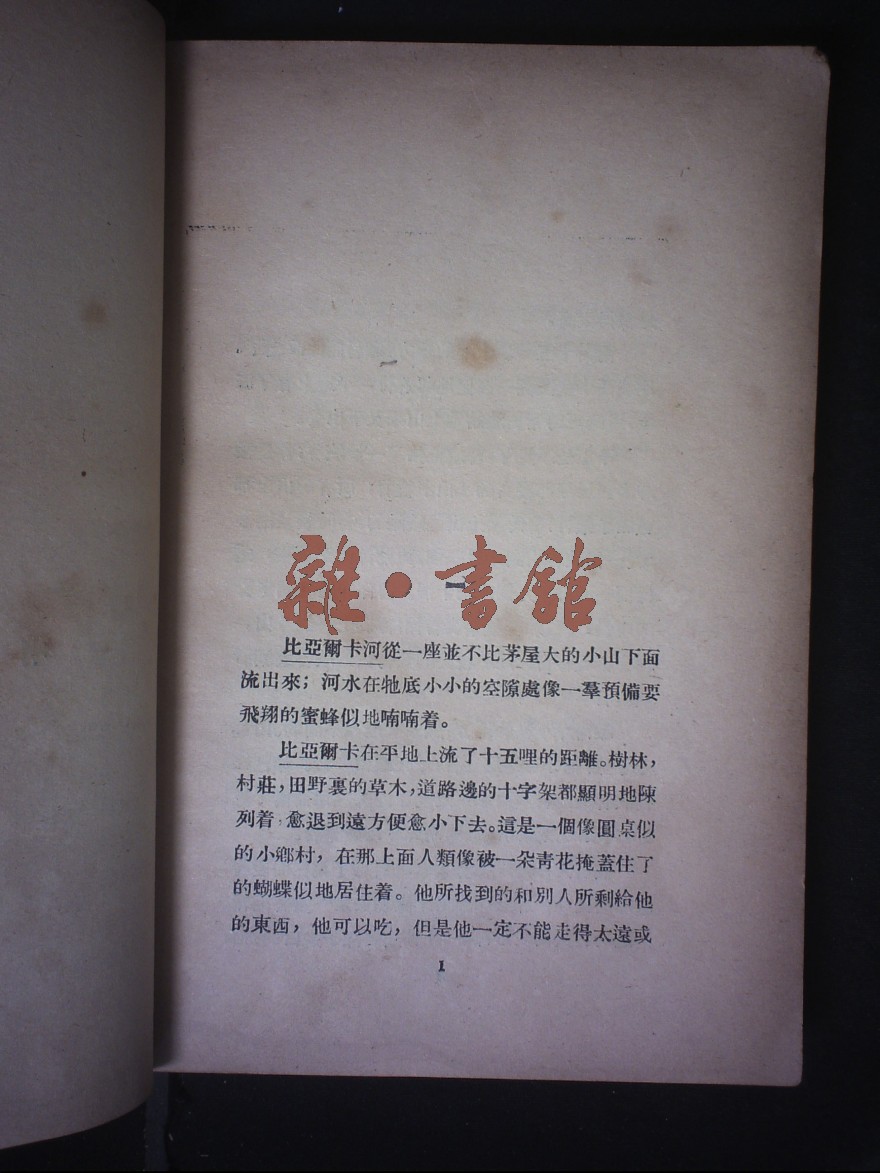 一
雜·書館
比亞爾卡河從一座並不比茅屋大的小山下面
流出來；河水在牠底小小的空隙處像一羣預備要
飛翔的蜜蜂似地喃喃着。
比亞爾卡在平地上流了十五哩的距離。樹林，
村莊，田野裏的草木，道路邊的十字架都顯明地陳
列着，愈退到遠方便愈小下去。這是一個像圓桌似
的小鄉村，在那上面人類像被一朵靑花掩蓋住了
的蝴蝶似地居住着。他所找到的和別人所剩給他
的東西，他可以吃，但是他一定不能走得太遠或
1